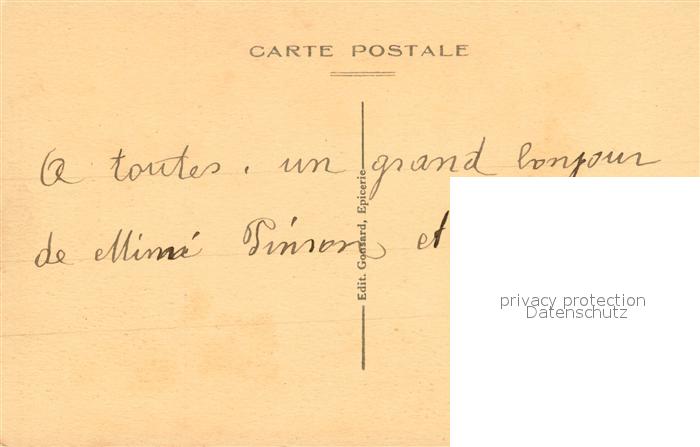 CARTE POSTALE
A toutes, un grand bonjour
de Mimi Pinson, et
Edit. Gonsard, Epicerie
privacy protection
Datenschutz